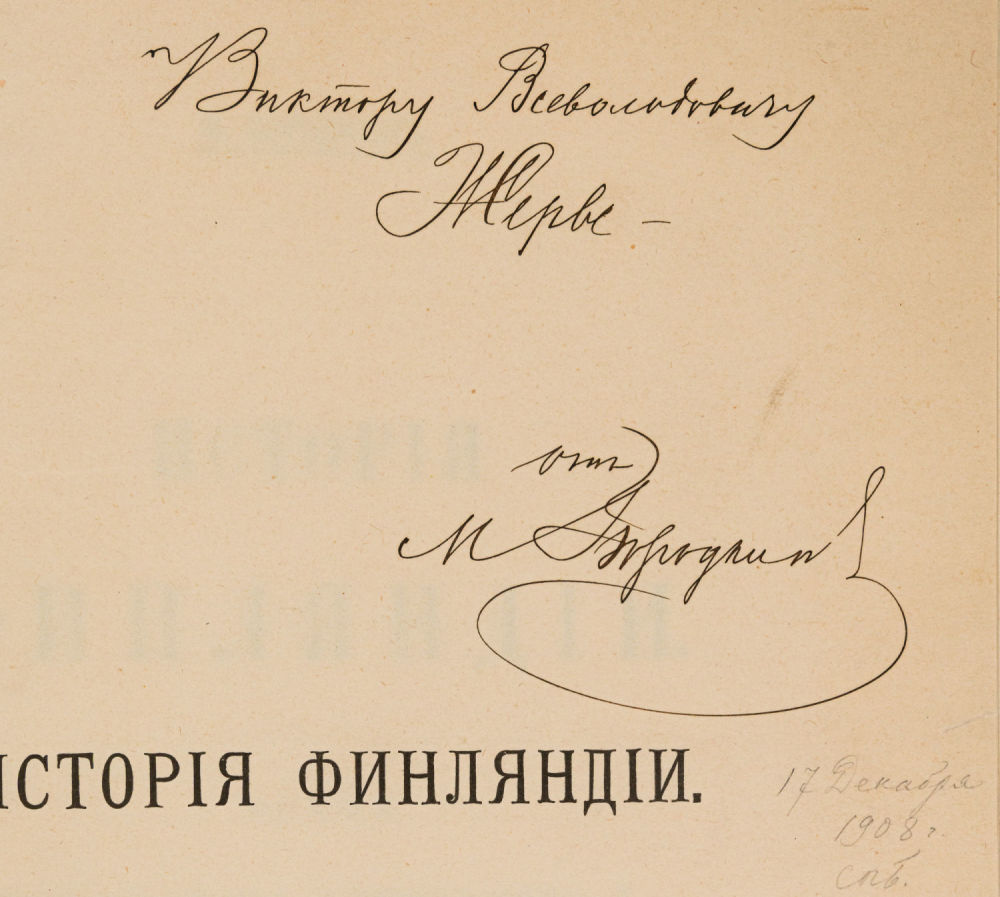 Виктору Всеволодовичу
Жерве —
отъ
М Бородкина
ИСТОРІЯ ФИНЛЯНДІИ.
17 Декабря
1908 г.
СПБ.